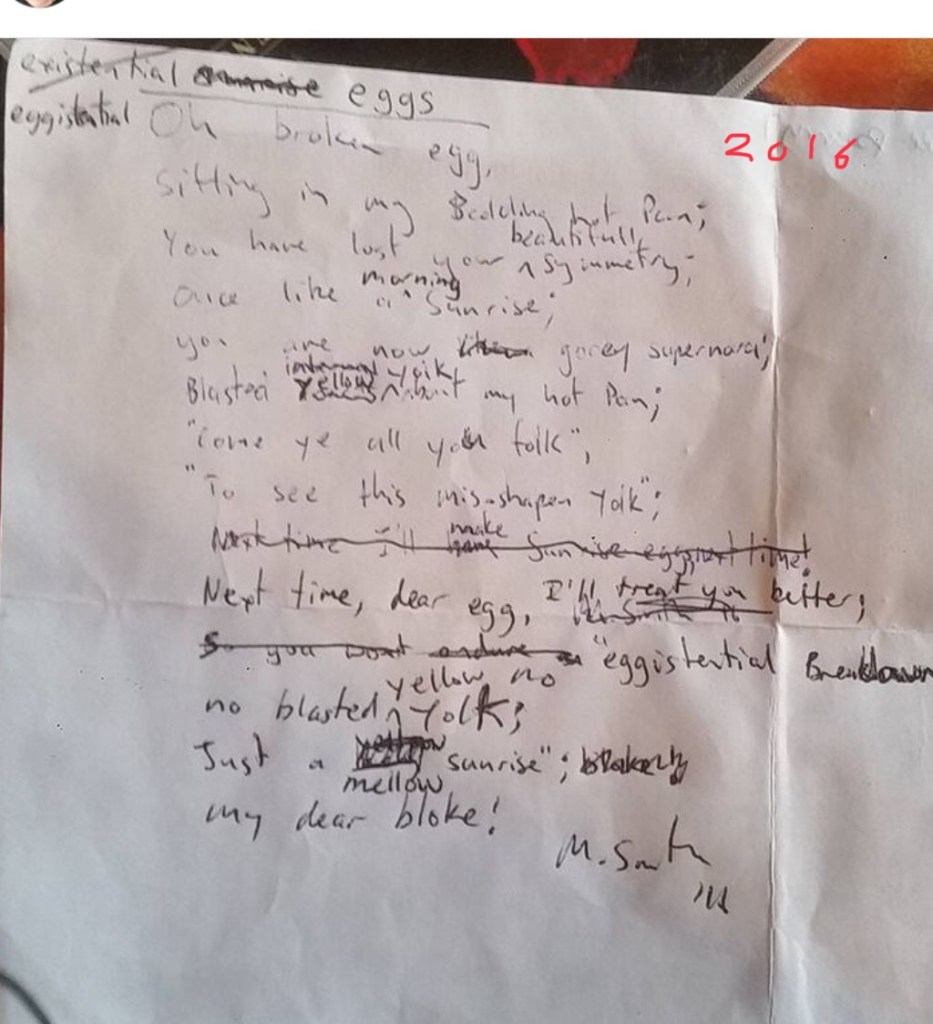 existential sunrise eggs
eggistential
2016
Oh broken egg,
Sitting in my Bedding hot Pan;
beautifull
You have lost your ^ Symmetry;
morning
Once like a ^ Sunrise;
you are now gorey supernova;
internal yolk
Blasted yellow about my hot Pan;
"Come ye all you folk",
"To see this mis-shapen Yolk";
make
Next time I'll have Sun rise eggs next time!
Next time, dear egg, I'll treat you better;
So you wont endure an "eggistential Breakdown
yellow no
no blasted ^ Yolk;
Just a yellow sunrise";
mellow
my dear bloke!
M. Smith